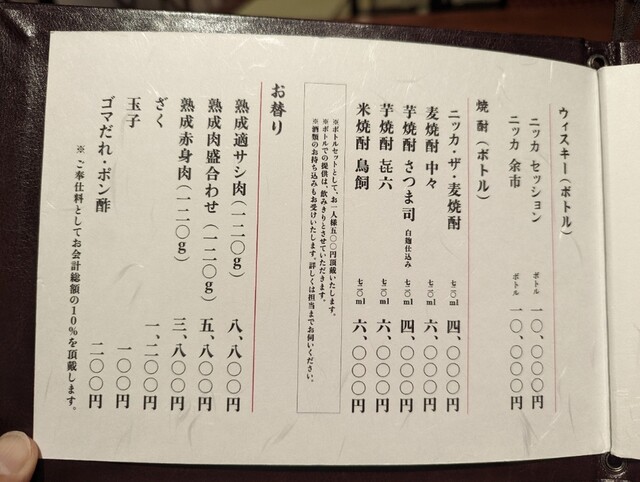 ウィスキー（ボトル）
ニッカ セッション ボトル 一〇、〇〇〇円
ニッカ 余市 ボトル 一〇、〇〇〇円
焼酎（ボトル）
ニッカ・ザ・麦焼酎 七二〇ml 四、〇〇〇円
麦焼酎 中々 七二〇ml 六、〇〇〇円
芋焼酎 さつま司 白麹仕込み 七二〇ml 四、〇〇〇円
芋焼酎 㐂六 七二〇ml 六、〇〇〇円
米焼酎 鳥飼 七二〇ml 六、〇〇〇円
※ボトルセットとして、お一人様五〇〇円頂戴いたします。
※ボトルでの提供は、飲みきりとさせていただきます。
※酒類のお持ち込みもお受けいたします。詳しくは担当までお伺いください。
お替り
熟成適サシ肉（一二〇g） 八、八〇〇円
熟成肉盛合わせ（一二〇g） 五、八〇〇円
熟成赤身肉（一二〇g） 三、八〇〇円
ざく 一、二〇〇円
玉子 一〇〇円
ゴマだれ・ポン酢 二〇〇円
※ ご奉仕料としてお会計総額の10％を頂戴します。